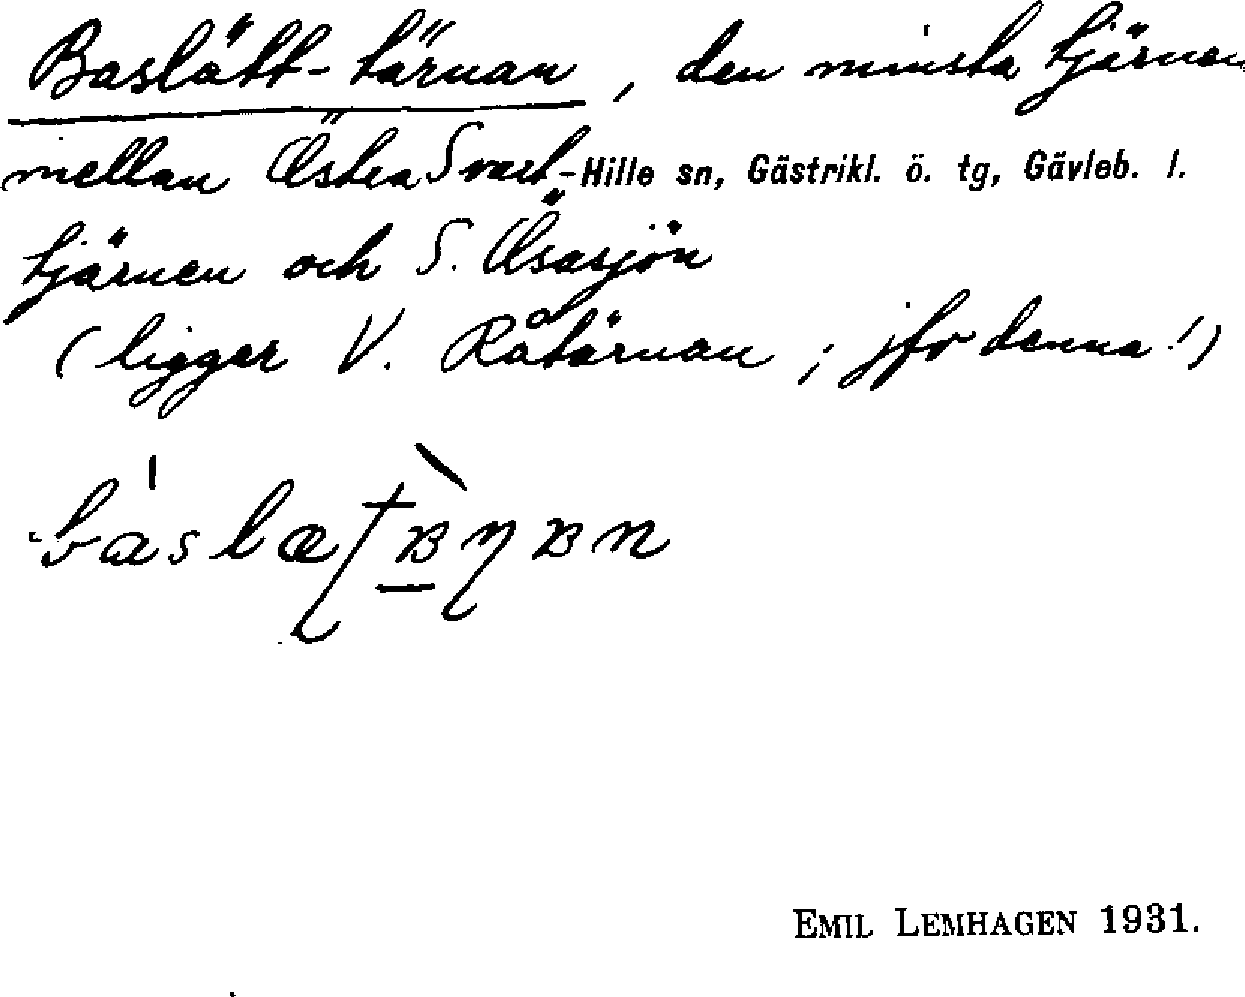 Baslätt-tärnan, den minsta tjärnen
mellan Östra Svart- Hille sn, Gästrikl. ö. tg, Gävleb. l.
tjärnen och S. Åsasjön
(ligger V. Råtärnan; jfr denna!)
EMIL LEMHAGEN 1931.